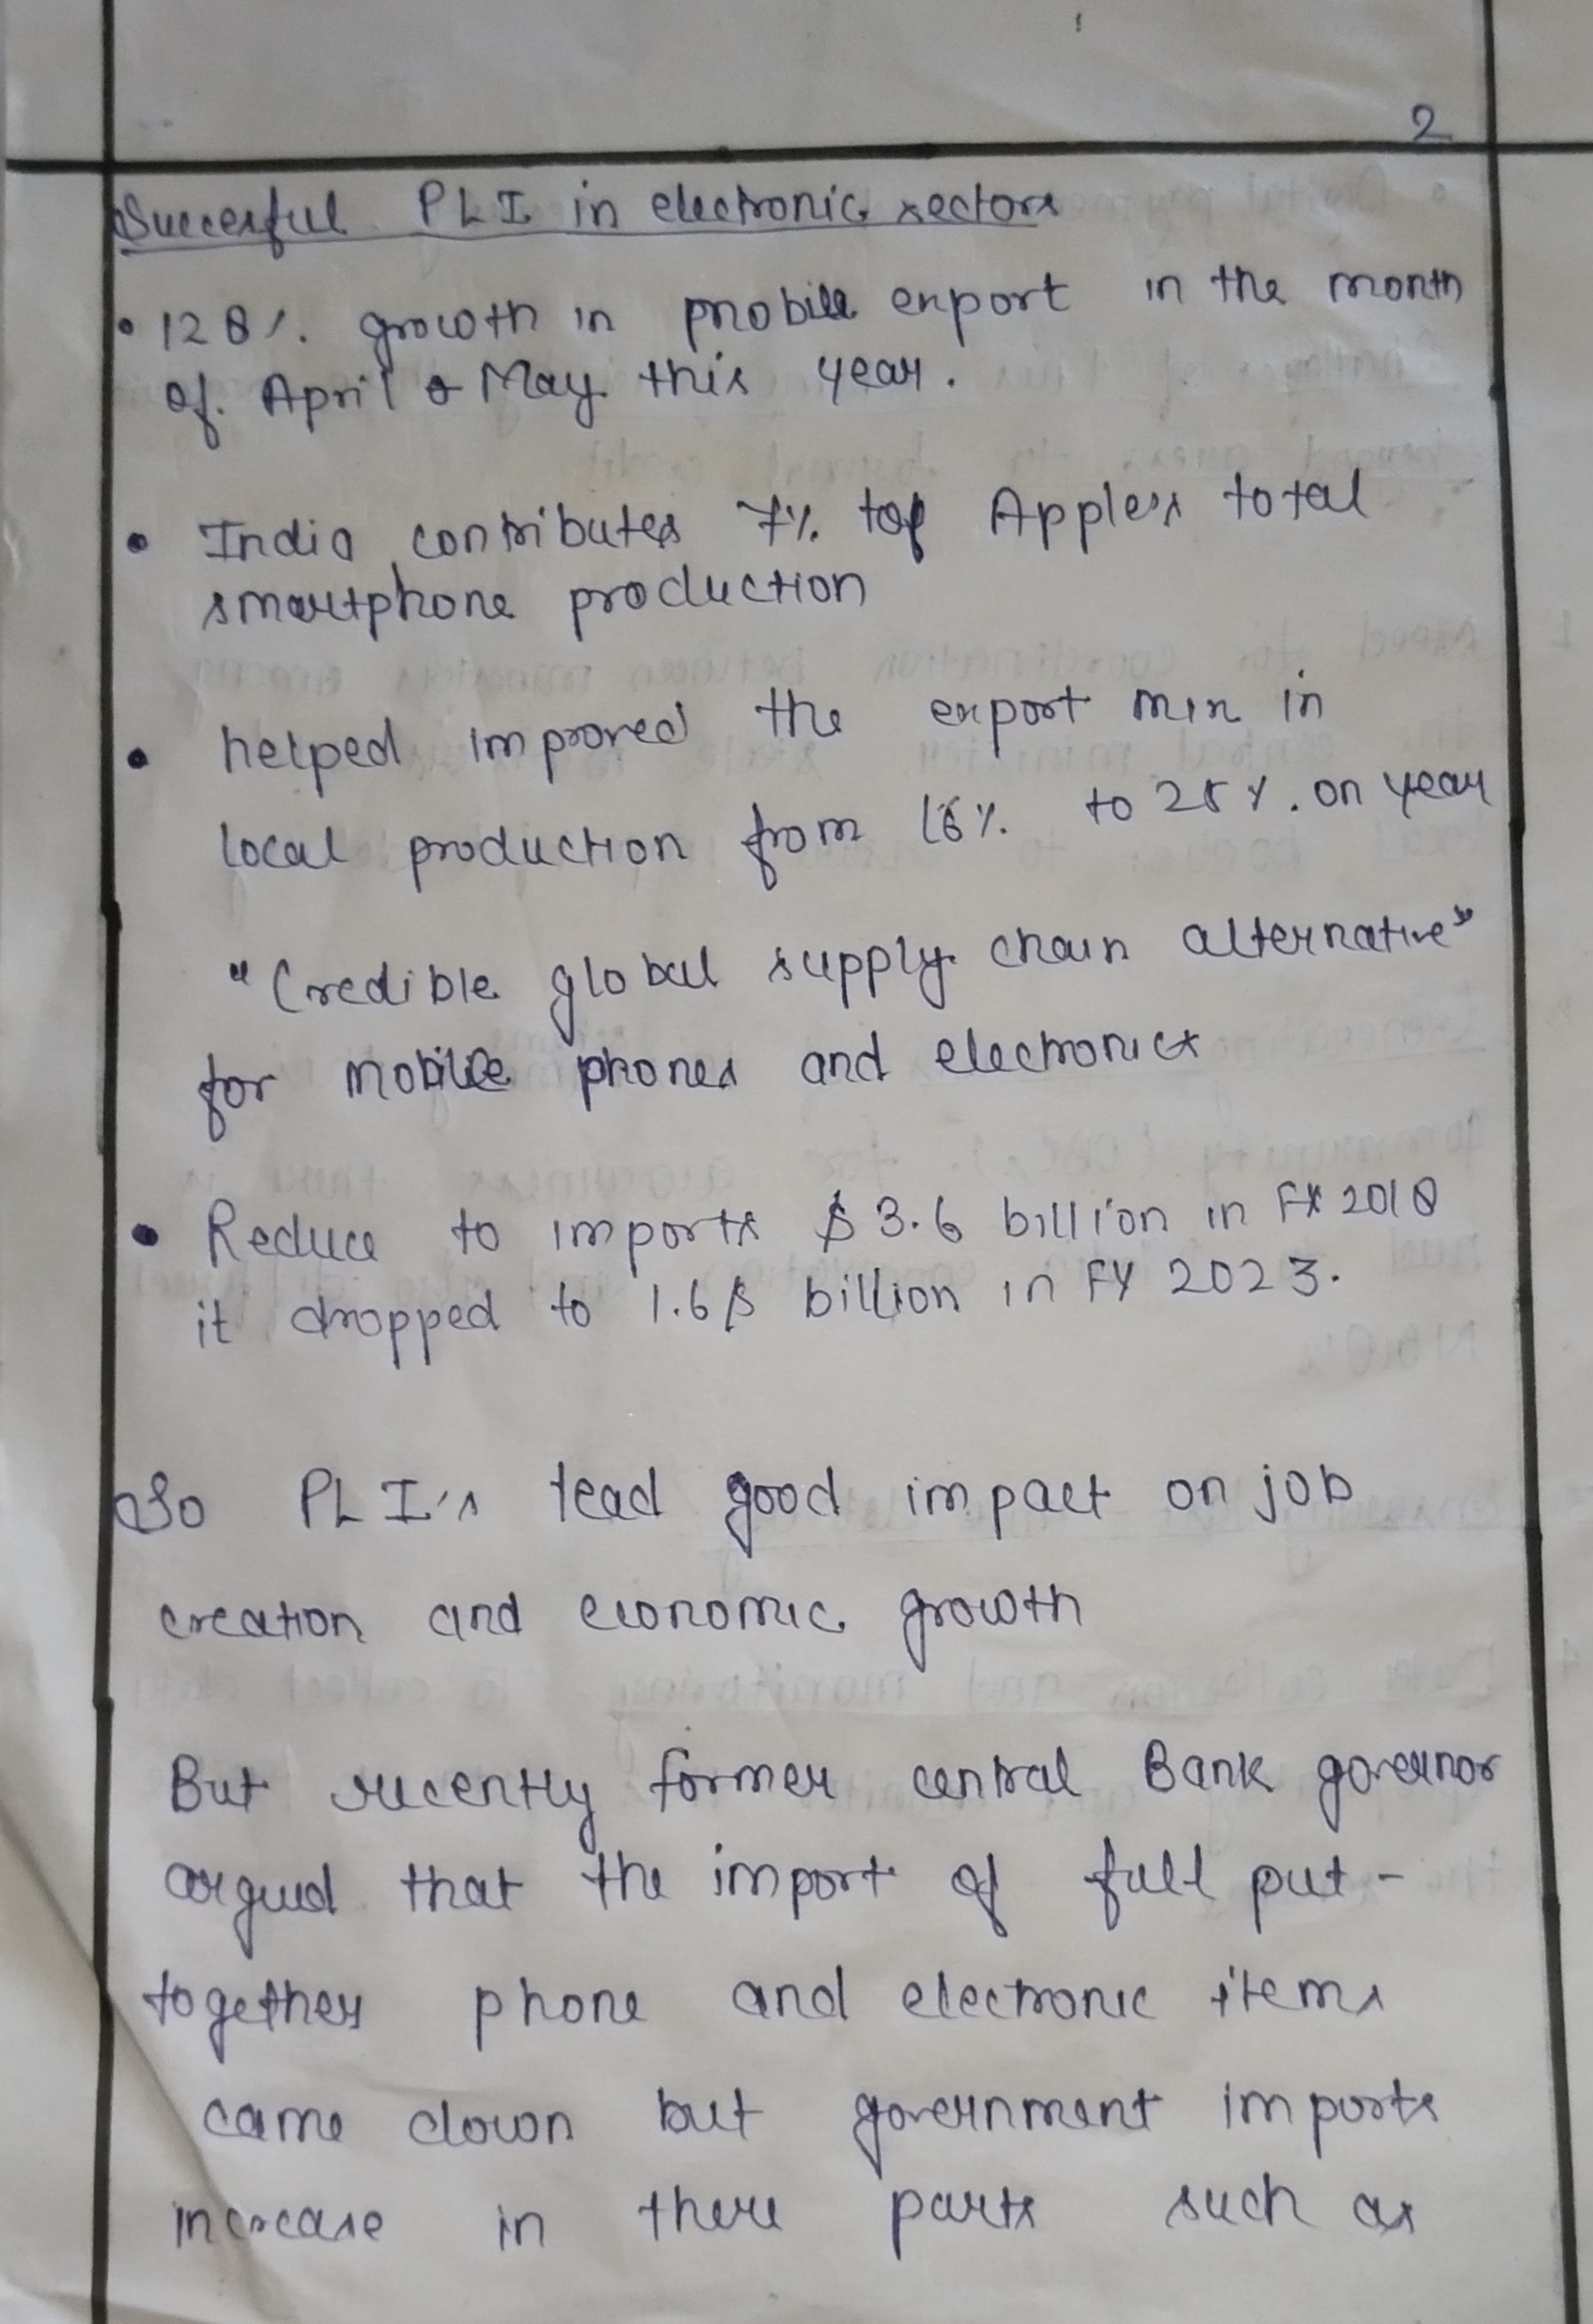 2
Succesful PLI in electronic sectors
• 128%. growth in mobile export in the month
of April & May this year.
• India contributes 7% of Apple's total
smartphone production
• helped improved the export mix in
local production from 16% to 25%. on year
"Credible global supply chain alternative"
for mobile phones and electronics
• Reduce to imports $3.6 billion in FY 2018
it dropped to 1.6$ billion in FY 2023.
So PLI's lead good impact on job
creation and economic growth
But recently former central Bank governor
argued that the import of full put-
together phone and electronic items
came down but government imports
increase in there parts such as